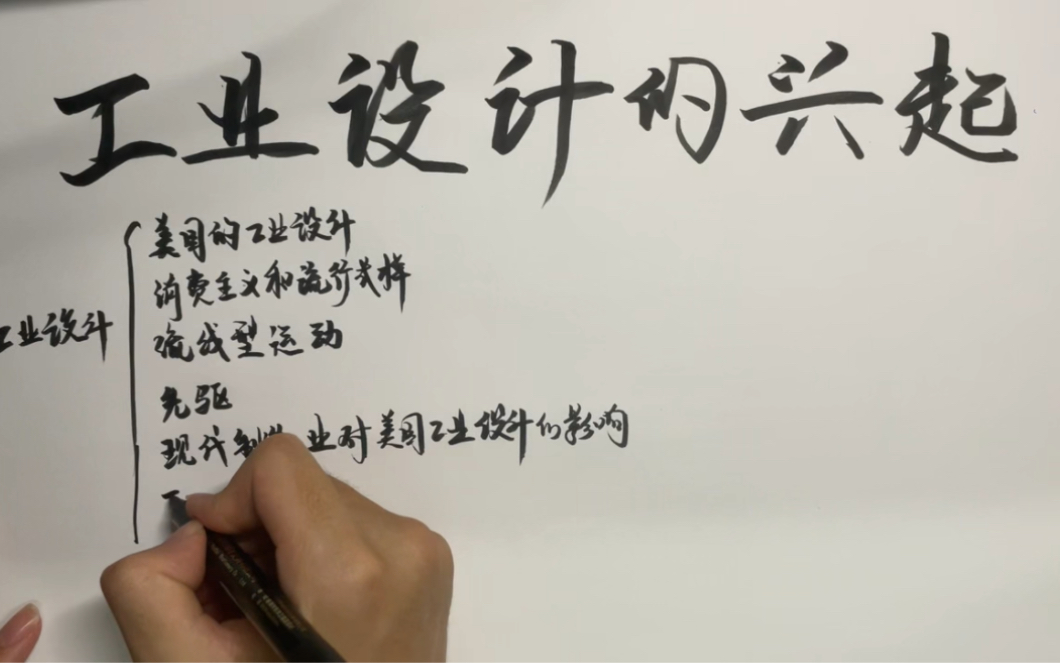 工业设计的兴起
工业设计
美国的工业设计
消费主义和流行式样
流线型运动
先驱
现代制造业对美国工业设计的影响